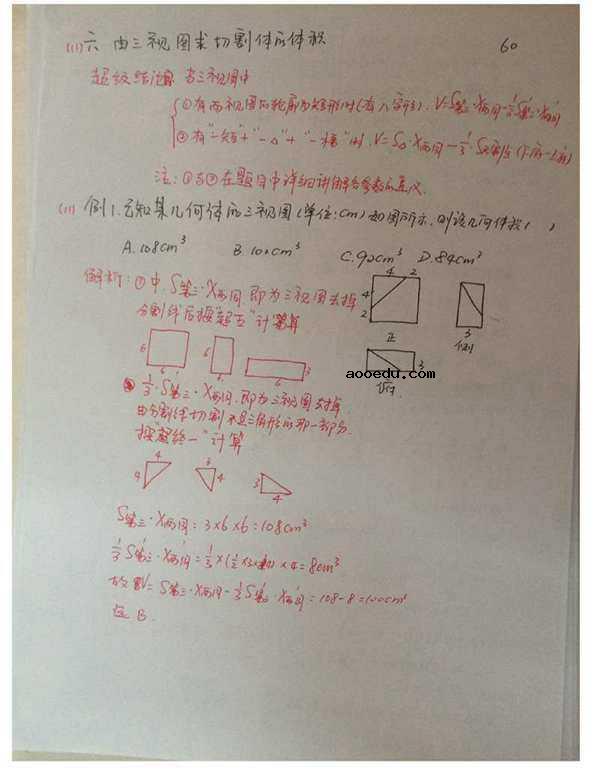 (11) 六 由三视图求切割体的体积 60
超级结论 当三视图中
①有两视图的轮廓为矩形时(有八字形), V=S第三·X两同-1/3S'第三·X'两同
②有"一矩"+"一△"+"一梯"时, V=S△·X两同-1/3·S
注: ①与②在题目中详细讲解各参数的意义.
(11) 例1. 已知某几何体的三视图(单位:cm)如图所示, 则该几何体积( )
A. 108cm³ B. 100cm³ C. 92cm³ D. 84cm³
解析: ①中. S第三·X两同. 即为三视图去掉
分割线后按"超五"计算
4 2
4
2
正
3
侧
3
俯
aooedu.com
6 6
6 6 3
6
1/3·S'第三·X'两同. 即为三视图去掉
由分割线切割不是三角形的那一部分.
按"超终一"计算
4 3
4 4 3
4
S第三·X两同=3×6×6=108cm³
1/3S'第三·X'两同=1/3×(1/2×3×4)×4=8cm³
故V=S第三·X两同-1/3S'第三·X'两同=108-8=100cm³
选 B.